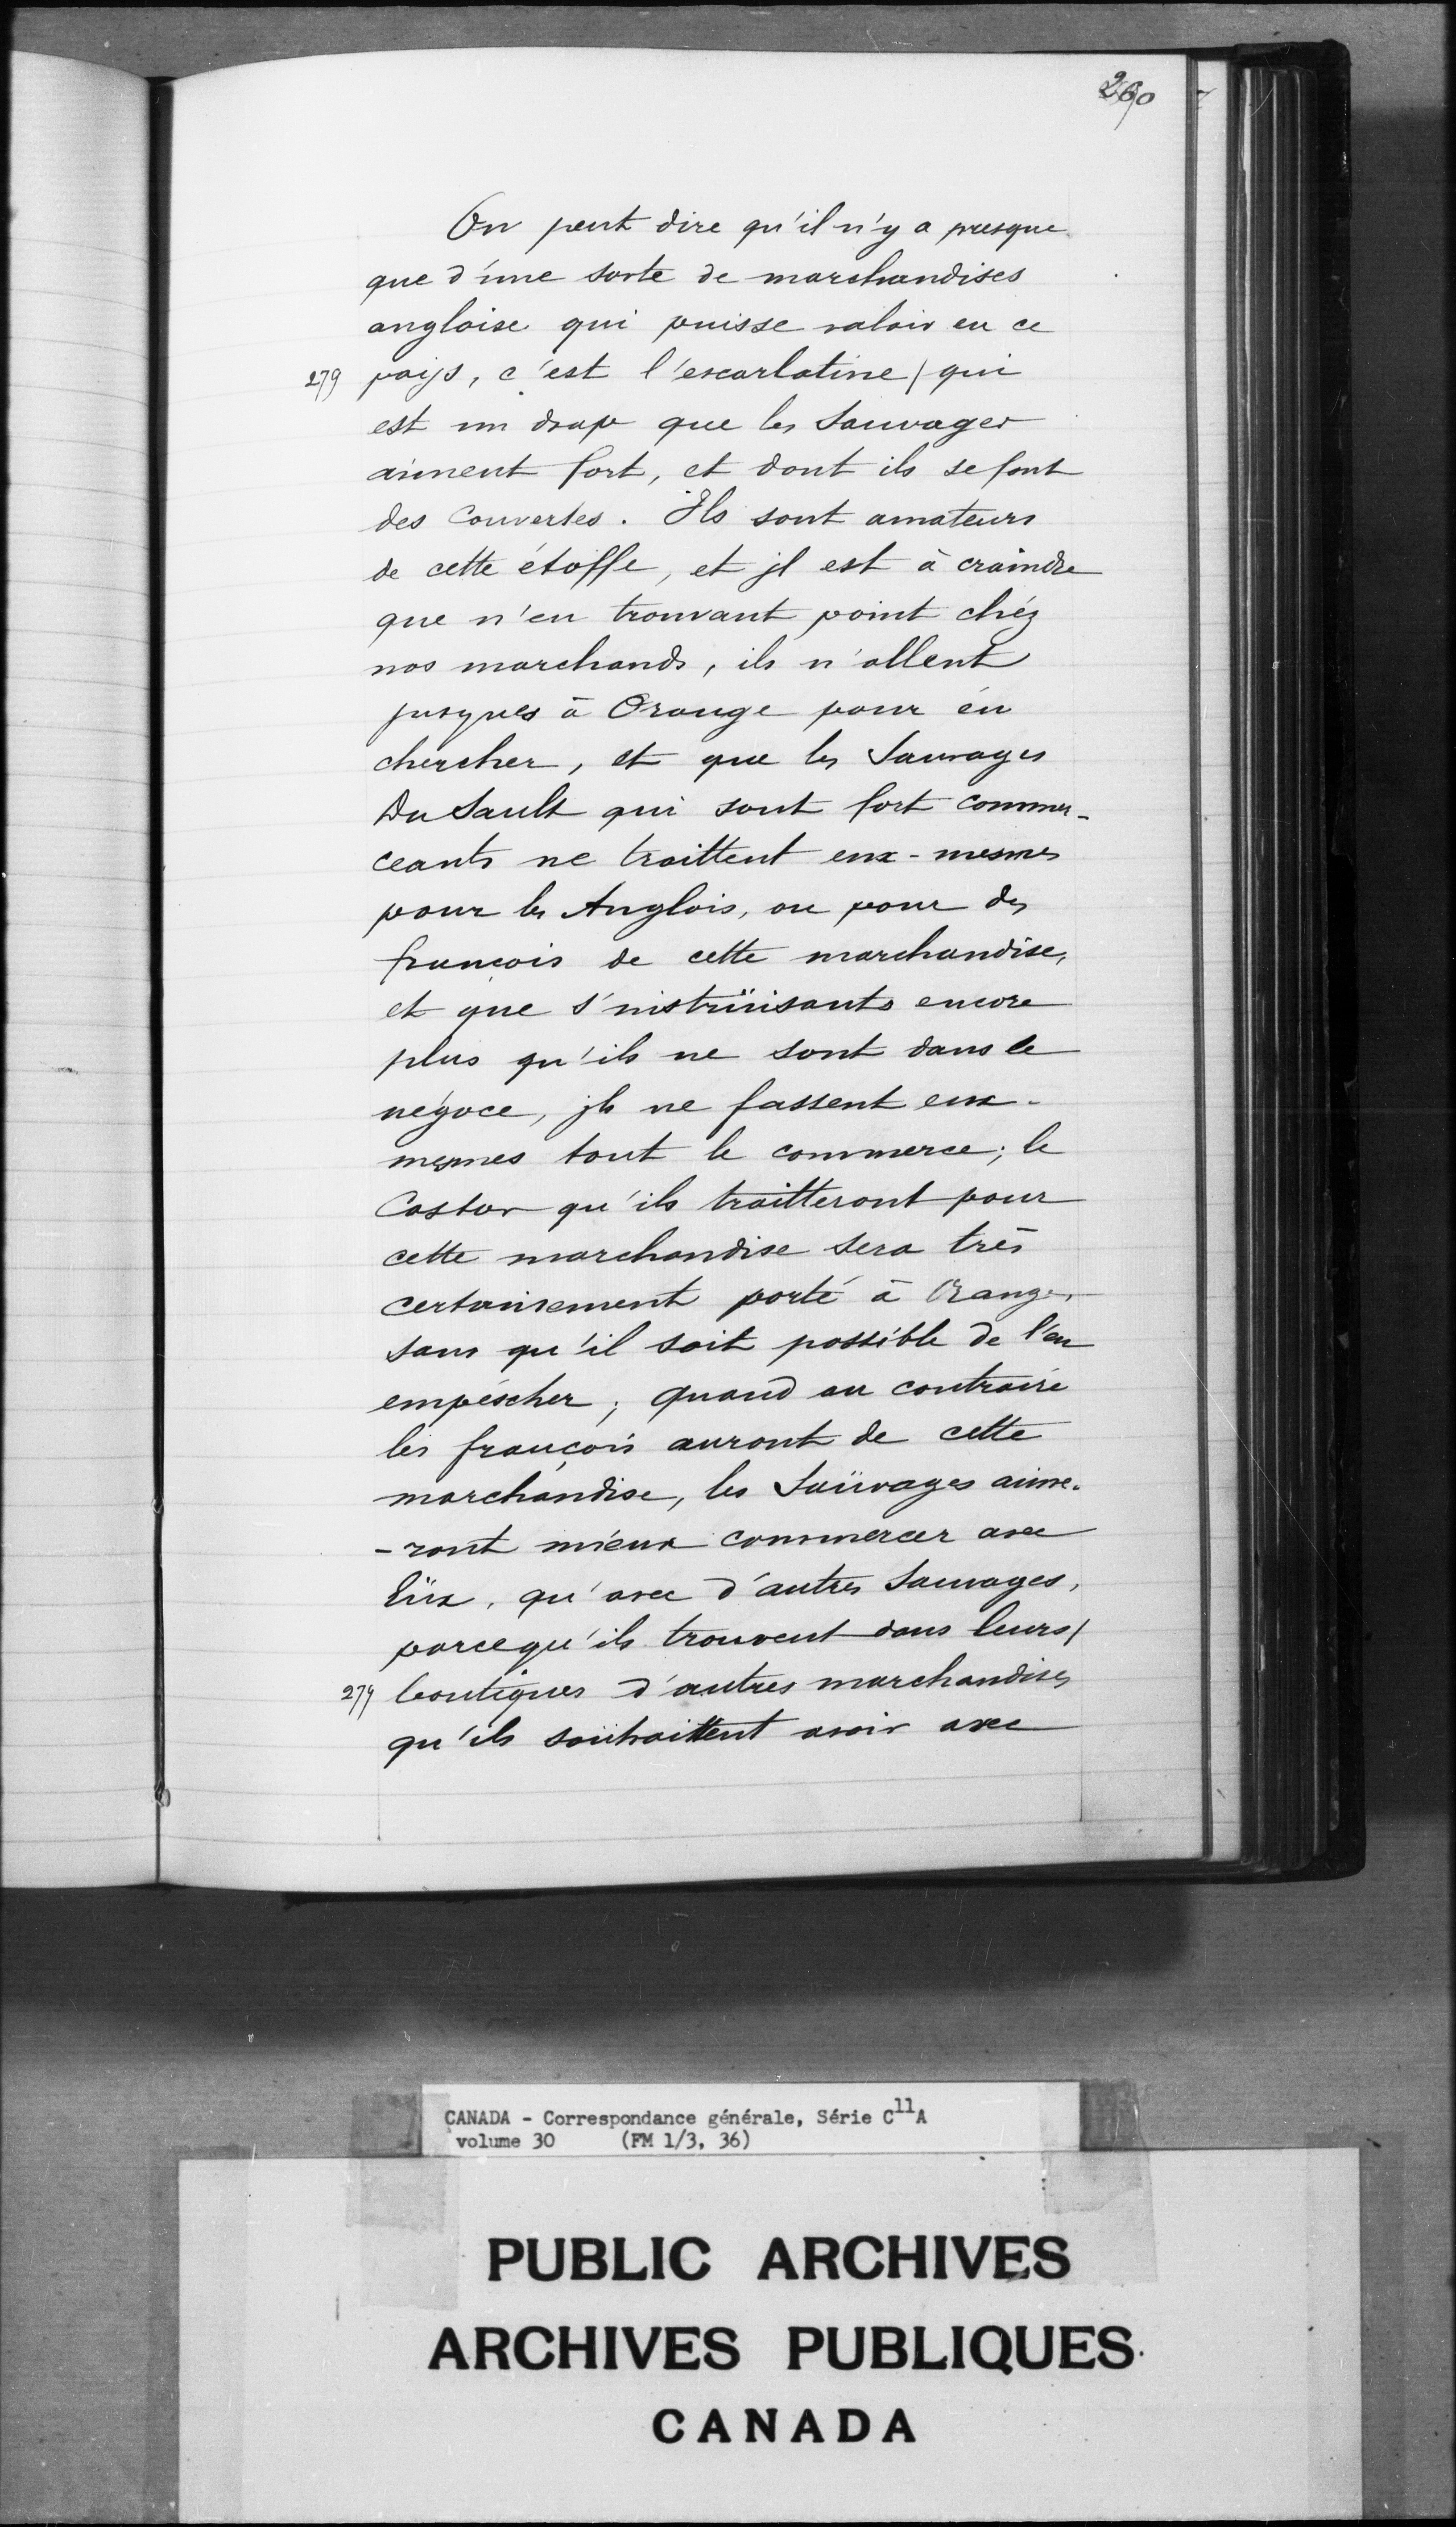 260
On peut dire qu'il n'y a presque
que d'une sorte de marchandises
angloise qui puisse valoir en ce
279 païs, c'est l'escarlatine / qui
est un drap que les Sauvages
aiment fort, et dont ils se font
des couvertes. Ils sont amateurs
de cette étoffe, et jl est à craindre
que n'en trouvant point chéz
nos marchands, ils n'allent
jusques à Orange pour en
chercher, et que les Sauvages
Du Sault qui sont fort commer-
ceants ne traittent eux-mesmes
pour les Anglois, ou pour des
françois de cette marchandise,
et que s'instrüisants encore
plus qu'ils ne sont dans le
négoce, jls ne fassent eux-
mesmes tout le commerce; le
Castor qu'ils traitteront pour
cette marchandise sera très
certainement porté à Orange,
sans qu'il soit possible de l'en
empéscher; quand au contraire
les françois auront de cette
marchandise, les Saüvages aime-
-ront mieux commercer avec
Eüx, qu'avec d'autres Sauvages,
parcequ'ils trouvent dans leurs /
279 boutiques d'autres marchandises
qu'ils soühaittent avoir avec
CANADA - Correspondance générale, Série C11A
volume 30 (FM 1/3, 36)
PUBLIC ARCHIVES
ARCHIVES PUBLIQUES
CANADA